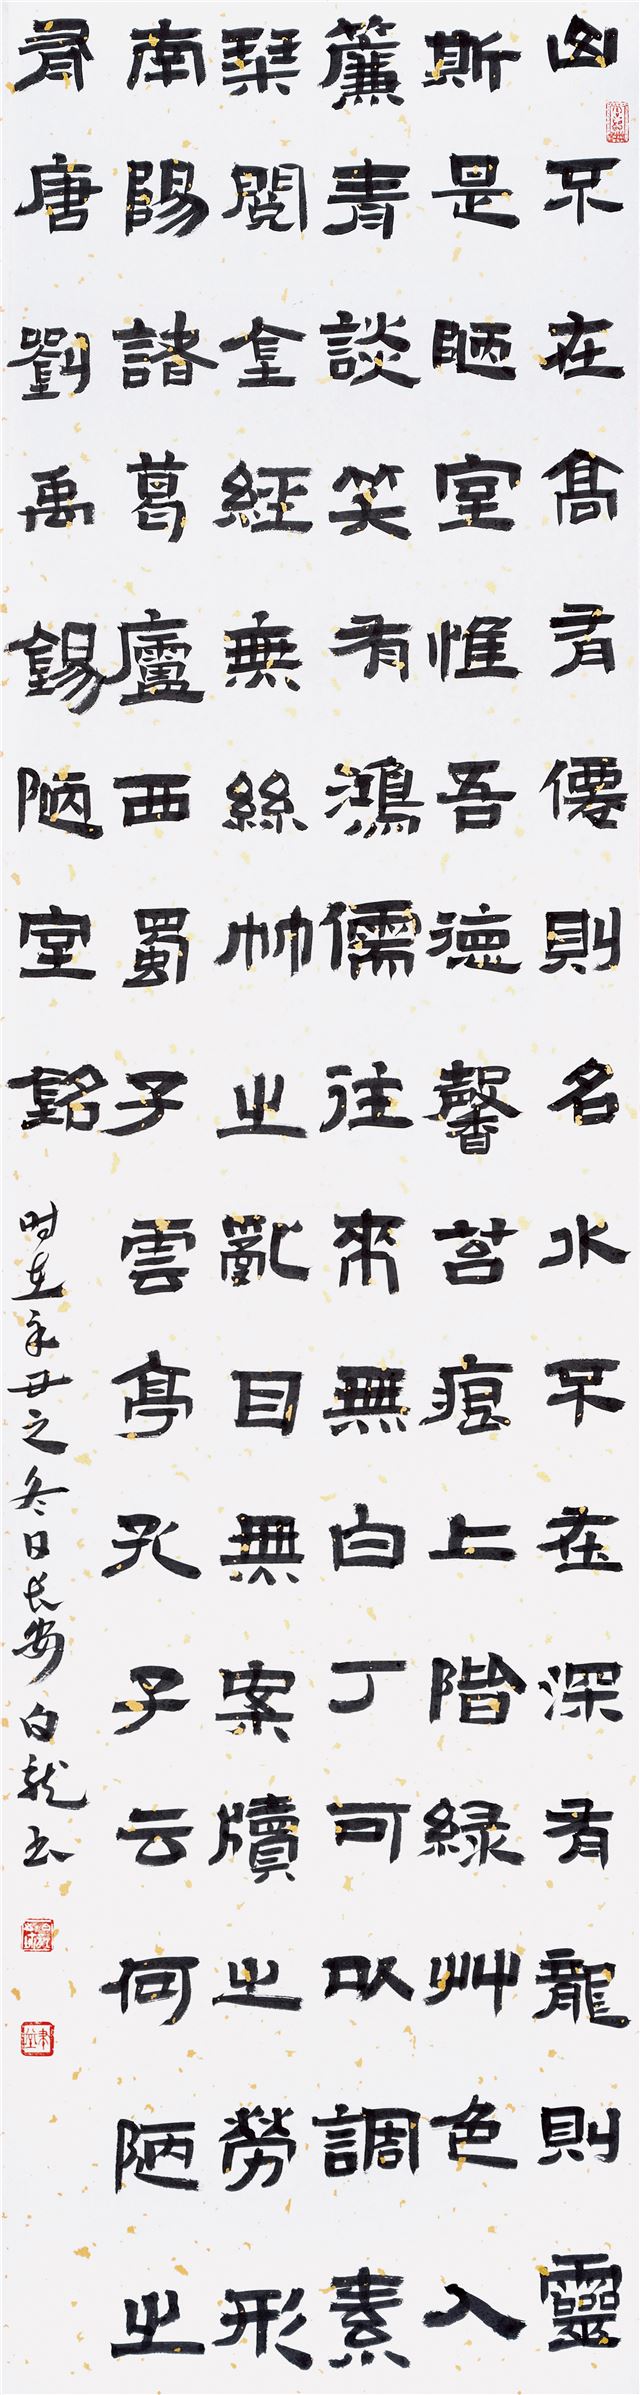 山不在高有僊則名水不在深有龍則靈
斯是陋室惟吾德馨苔痕上階綠艸色入
簾青談笑有鴻儒往來無白丁可以調素
琹閱金經無絲竹之亂目無案牘之勞形
南陽諸葛廬西蜀子雲亭孔子云何陋之
有唐劉禹錫陋室銘
时在辛丑之冬日长安白龙书